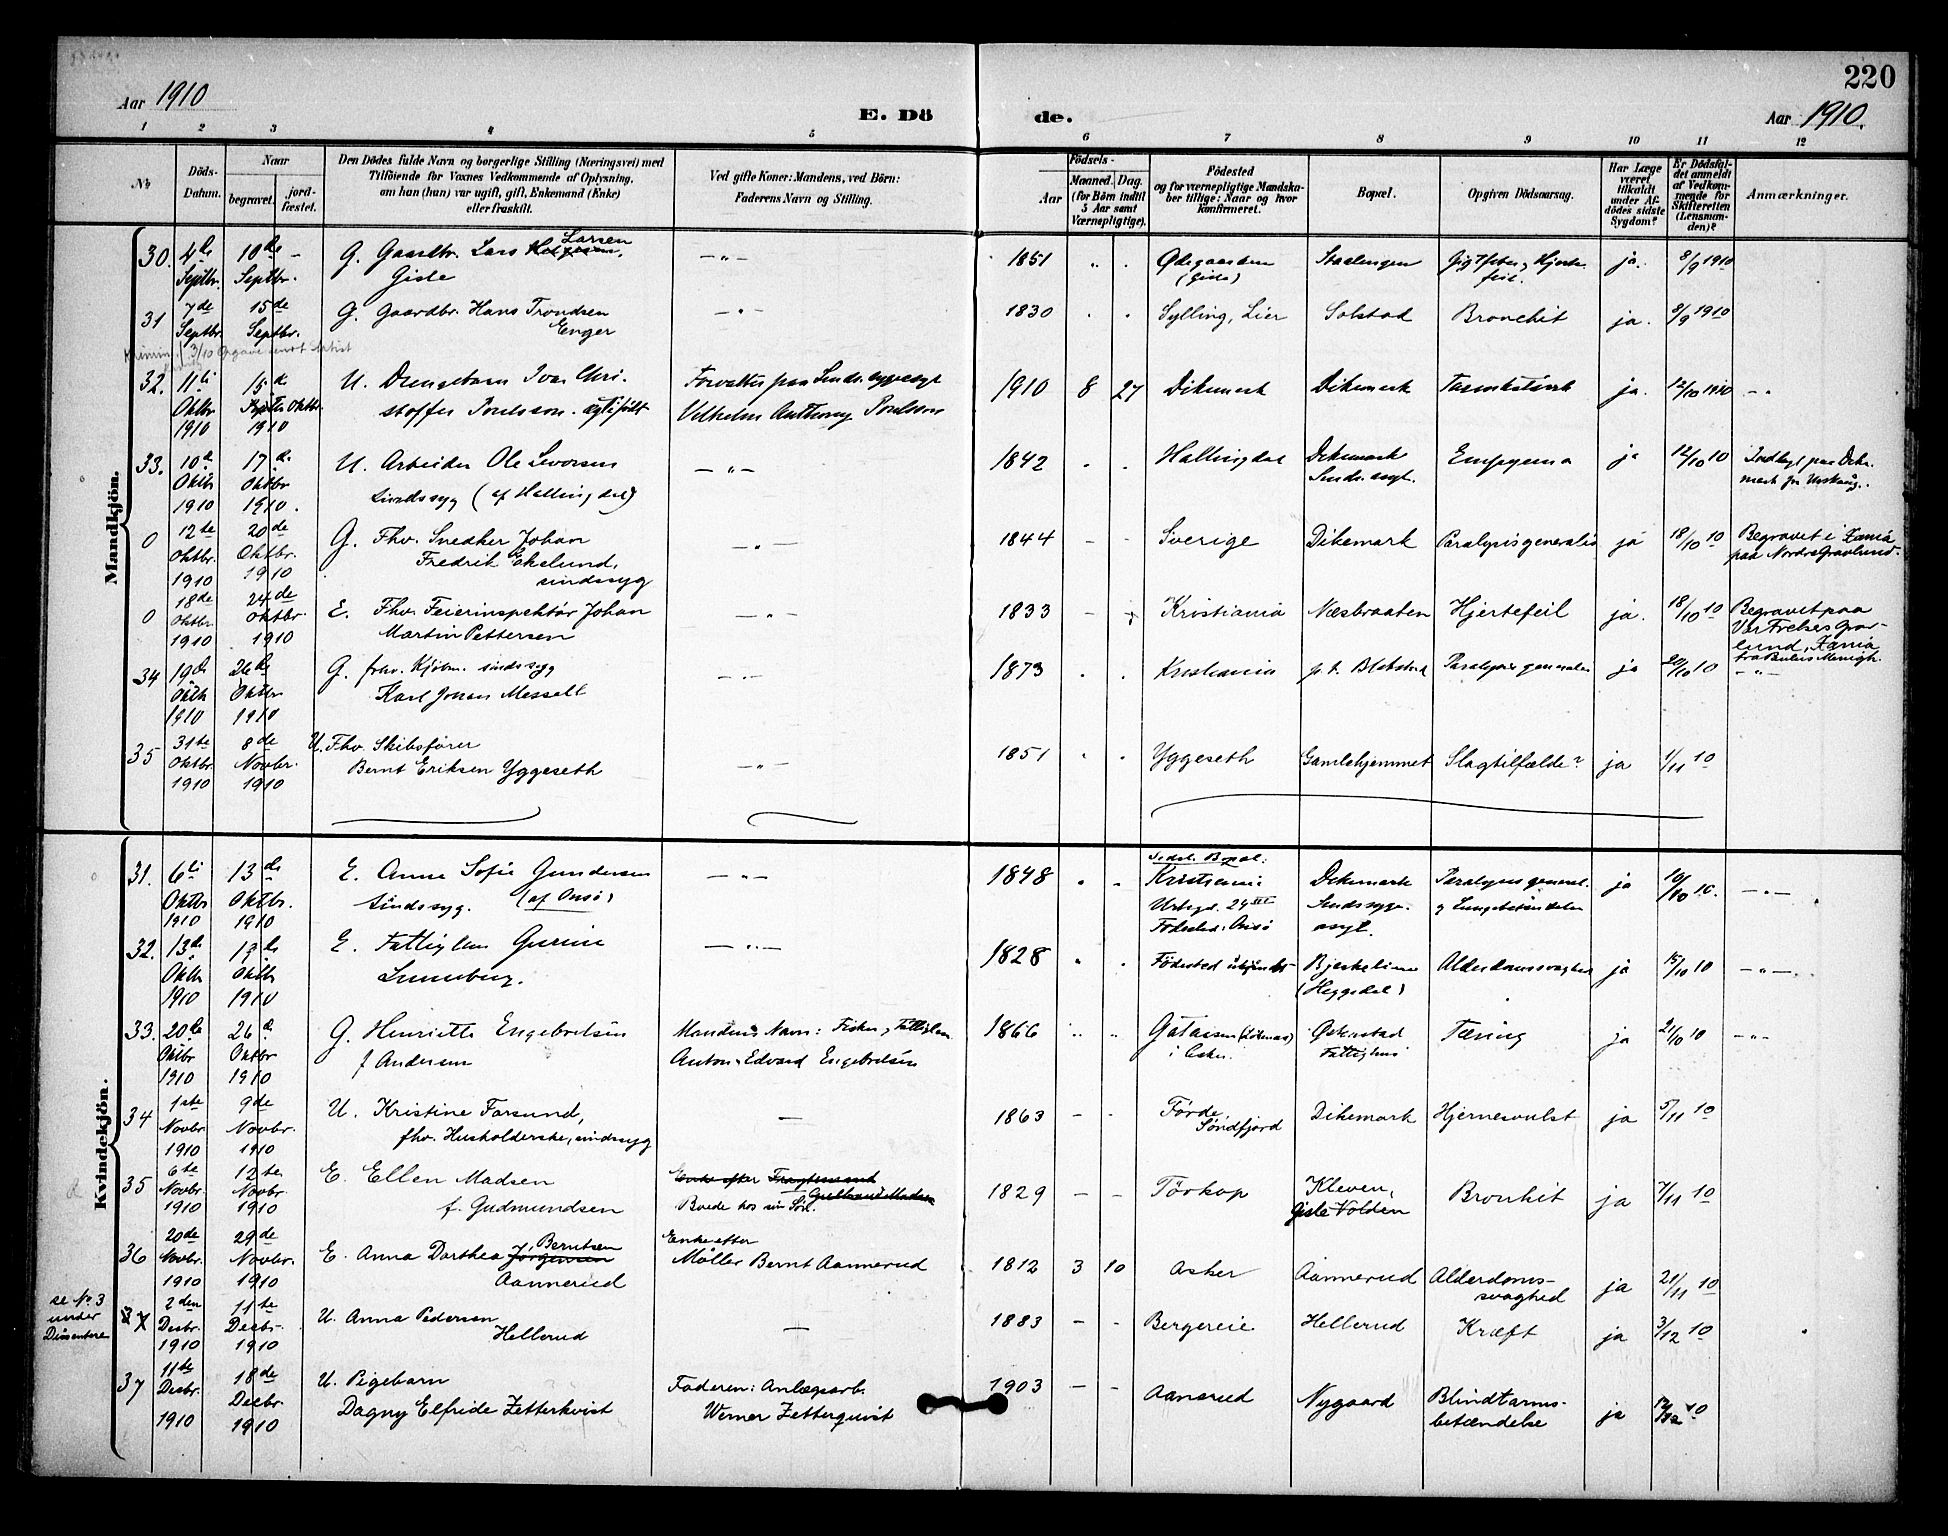 220
Aar 1910
E. Dö
de.
Aar 1910.
1 2 3 4 5 6 7 8 9 10 11 12
No
Döds-
Datum.
Naar
begravet.
jord-
fæstet.
Den Dödes fulde Navn og borgerlige Stilling (Næringsvei) med
Tilföiende for Voxnes Vedkommende af Oplysning,
om han (hun) var ugift, gift, Enkemand (Enke)
eller fraskilt.
Ved gifte Koner: Mandens, ved Börn:
Faderens Navn og Stilling.
Födsels-
Aar
Maaned. Dag.
(for Börn indtil
5 Aar samt
Værnepligtige).
Födested
og for værnepligtige Mandska-
ber tillige: Naar og hvor
konfirmeret.
Bopæl.
Opgiven Dödsaarsag.
Har Læge
været
tilkaldt
under Af-
dödes sidste
Sygdom?
Er Dödsfal-
det anmeldt
af Vedkom-
mende for
Skifteretten
(Lensman-
den)?
Anmærkninger.
Mandkjön.
30. 4de Septbr. 10de Septbr. – G. Gaardbr. Lars Larsen Gisle –"– 1851 " . Ødegaarden (Gisle) Staalengen Gigtfeber, Hjerte-feil. ja. 8/9 1910
31 7de Septbr. 15de Septbr. G. Gaardbr. Hans Trondsen Enger –"– 1830 " " Sylling, Lier Solstad Bronchit ja. 8/9 1910
3/10 Opgave sendt
32. 11te Oktbr 1910 15de Oktbr. 1910 U. Drengebarn Ivar Chri-
stoffer Poulsson. ægtefödt Forvalter paa Sinds.sygeasyl
Vilhelm Anthony Poulsson 1910 8 27 Dikemark Dikemark ja. 12/10 1910 –"
33. 10de Oktbr 1910 17de Oktbr 1910. U. Arbeider Ole Levorsen
Sindssyg (af Hallingdal) –"– 1842 . . Hallingdal Dikemark
Sinds.asyl. Empyema ja 12/10 10 Indlagt paa Dike-
mark fr
0 12te Oktbr. 1910 20de Oktbr. 1910 G. Fhv. Snedker Johan
Fredrik Ekelund,
sindssyg –"– 1844 – – Sverige Dikemark Paralysis generalis ja 18/10 10 Begravet i Xania
paa Nordre Gravlund.
0 18de Oktbr. 1910 24de Oktbr. 1910 E. Fhv. Feierinspektör Johan
Martin Pettersen –"– 1833 – – Kristiania Næsbraaten Hjertefeil ja. 18/10 10 Begravet paa
Vor Frelsers Grav-
lund, Xania
fra Menigh.
34 19de Oktb 1910 26de Oktbr 1910 G. frhv. Kjöbm. sindssyg
Karl Johan Messelt –"– 1873 . . Kristiania p.t. Blakstad Paralysis generalis ja 20/10 10 –"–
35 31te Oktbr. 1910 8de Novbr. 1910 U. Fhv. Skibsförer
Bernt Eriksen Yggeseth –"– 1851 " " Yggeseth Gamlehjemmet Slagtilfælde? ja 1/11 10
Kvindekjön.
31. 6te Oktbr 1910 13de Oktbr. 1910 E. Anne Sofie Gundersen
Sindssyg. (af Onsö) –"– 1848 " " Sidst. Bopæl:
Kristiania
Urtegd. 24
Födested: Onsö Dikemark
Sindssyge-
asyl. Paralysis general.
og Lungebetændelse ja 10/10 10. –"–
32. 13de Oktbr 1910 19de Oktbr 1910 E. Fattiglem Gurine
Luneberg. –"– 1828 " . Födested ubekjendt Bjerkelien
(Heggedal) Alderdomssvaghed ja 15/10 10 –"–
33. 20de Oktbr 1910 26de Oktbr 1910 G. Henriette Engebretsen
f Andersen Mandens Navn: Fisker, Fattiglem
Anton Edvard Engebretsen 1866 " " i Asker. Østenstad
Fattighus Tæring ja 21/10 10 –"–
34 1ste Novbr. 1910 9de Novbr. 1910 U. Kristine Farsund,
fhv. Husholderske, sindssyg – 1863 – – Förde,
Söndfjord Dikemark Hjernesvulst ja 5/11 10
35 6te Novbr. 1910 12te Novbr. 1910 E. Ellen Madsen
f. Gudmundsen Enke efter Fragtemand
Gulbrand Madsen
Boede hos sin Sön. 1829 – – Törkop Kleven,
Gisle Volden Bronkit ja 7/11 10
36 20de Novbr. 1910 29de Novbr. 1910 E. Anna Dorthea Jörgensen Berntsen
Aannerud Enke efter
Möller Bernt Aannerud 1812 3 10 Asker Aannerud Alderdoms-
svaghed ja 21/11 10
se No. 3
under
Dissentere
37 2den Desbr. 1910 11te Desbr. 1910 U. Anna Pedersen
Hellerud – 1883 – – Bergereie Hellerud Kræft ja 3/12 10
37 11te Desbr. 1910 18de Desbr. 1910 U. Pigebarn
Dagny Elfride Zetterkvist Faderen: Anlægsarb.
Werner Zetterquist 1903 – – Aanerud Nygaard Blindtarms-
betændelse ja 12/12 10